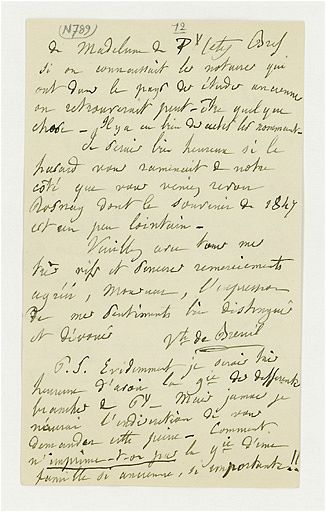 N789 12
de Madelaine de Py (etc) Bref
si on connaissait les notaires qui
ont dans le pays des études anciennes
on retrouverait peut-être quelque
chose - Il y a eu bien des actes les nommant -
Je serais bien heureux si le
hasard vous ramenait de notre
côté que vous veniez revoir
Rosnay dont le souvenir de 1847
est un peu lointain -
Veuillez avec tous me
très vifs et sincères remerciements
agréer, Monsieur, l'expression
de mes sentiments les distingués
et dévoués
Vte de Breuil
P.S. Evidemment je serais très
heureux d'avoir la gie des différentes
branches de Py - Mais jamais je
n'aurai l'indiscrétion de vous
demander cette peine - Comment
n'imprime-t-on pas la gie d'une
famille si ancienne, si importante !!